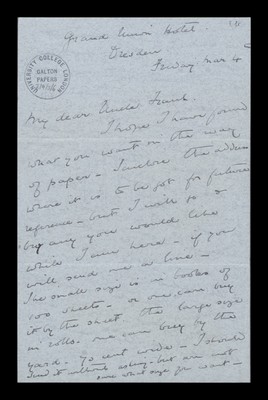 Grand Union Hotel
Dresden
Friday Mar 4
UNIVERSITY COLLEGE LONDON
GALTON PAPERS
My dear Uncle Frank
I hope I have found
what you want in the way
of paper - I enclose the address
where it is to be got for future
reference - but I will go &
buy any you would like
while I am here - if you
will send me a line -
The small size is in books of
100 sheets - or one can buy
it by the sheet. The large size
in rolls. one can buy by the
yard. 70 cent wide - I should
send it without asking - but am not
sure what size you want -